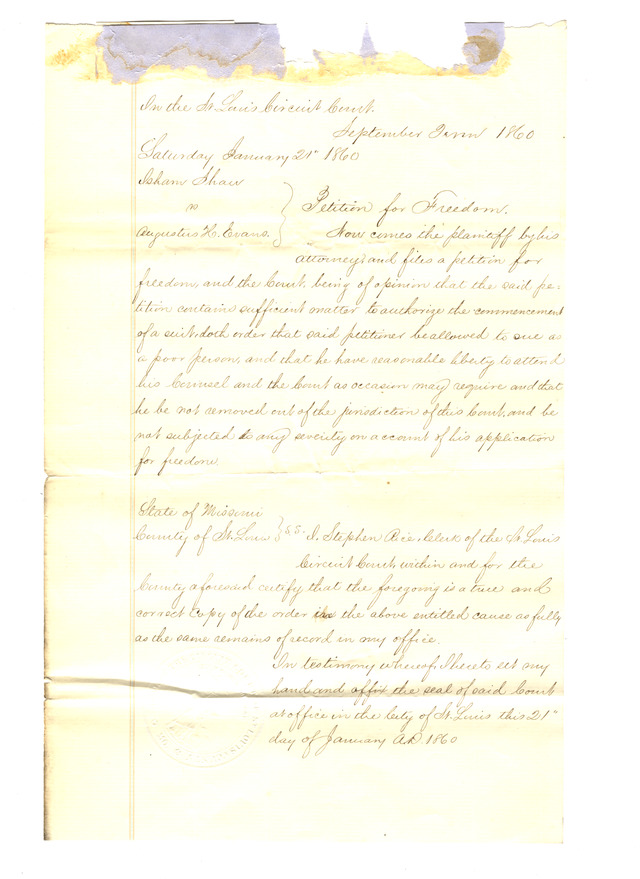 In the St. Louis Circuit Court.
September Term 1860
Saturday January 21" 1860
Isham Shaw
vs
Augustus H. Evans.
Petition for Freedom.
Now comes the plaintiff by his
attorney and files a petition for
freedom, and the Court, being of opinion that the said pe-
tition contains sufficient matter to authorize the commencement
of a suit, doth order that said petitioner be allowed to sue as
a poor person, and that he have reasonable liberty to attend
his Counsel and the Court as occasion may require and that
he be not removed out of the jurisdiction of this Court, and be
not subjected to any severity on account of his application
for freedom.
State of Missouri
County of St. Louis } S.S. I, Stephen Rice, Clerk of the St Louis
Circuit Court, within and for the
County aforesaid certify that the foregoing is a true and
correct copy of the order in the above entitled cause as fully
as the same remains of record in my office.
In testimony whereof, I hereto set my
hand and affix the seal of said Court
at office in the City of St. Louis this 21"
day of January A.D. 1860